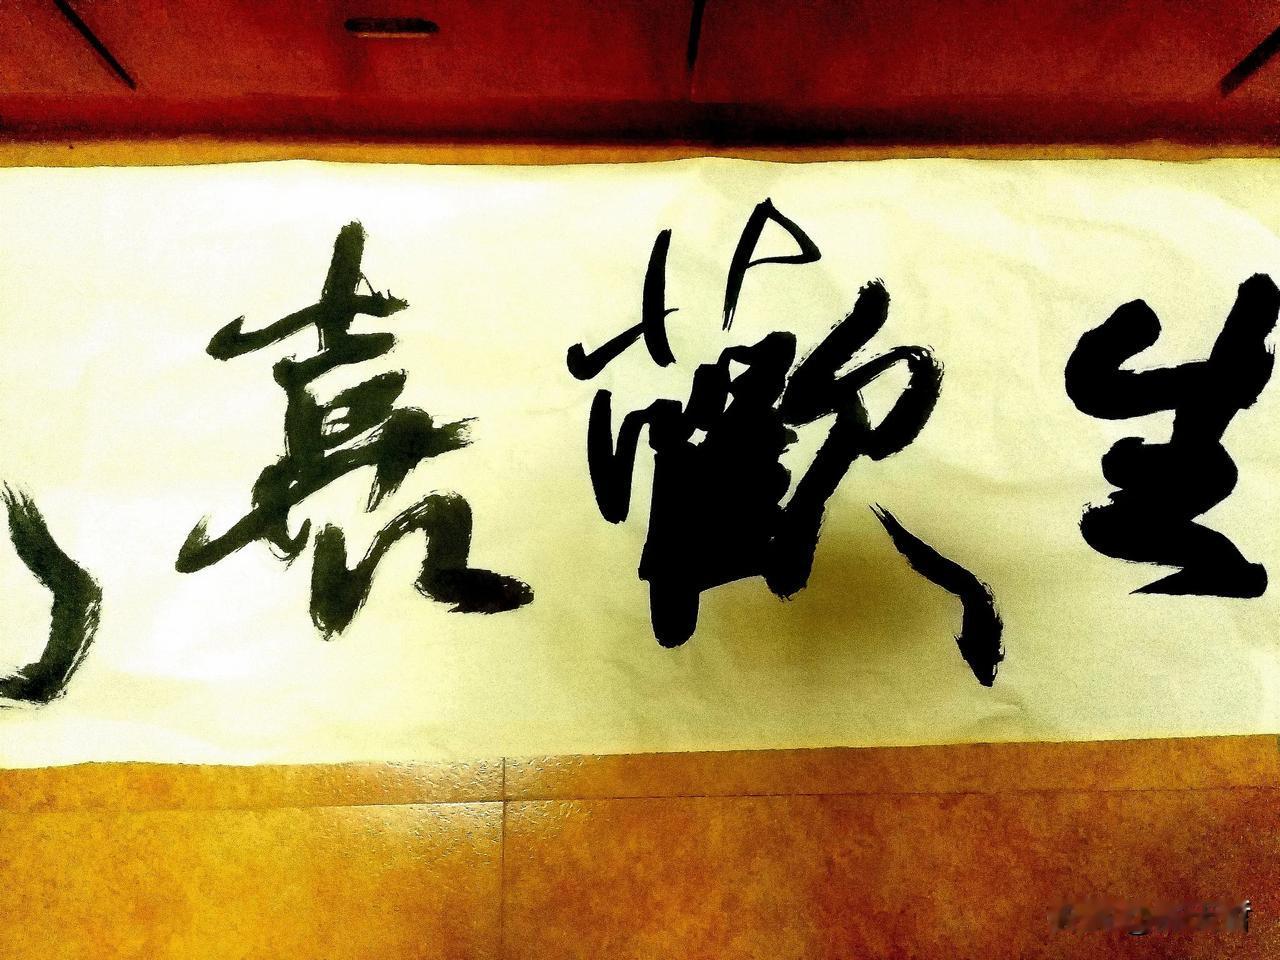 生歡喜